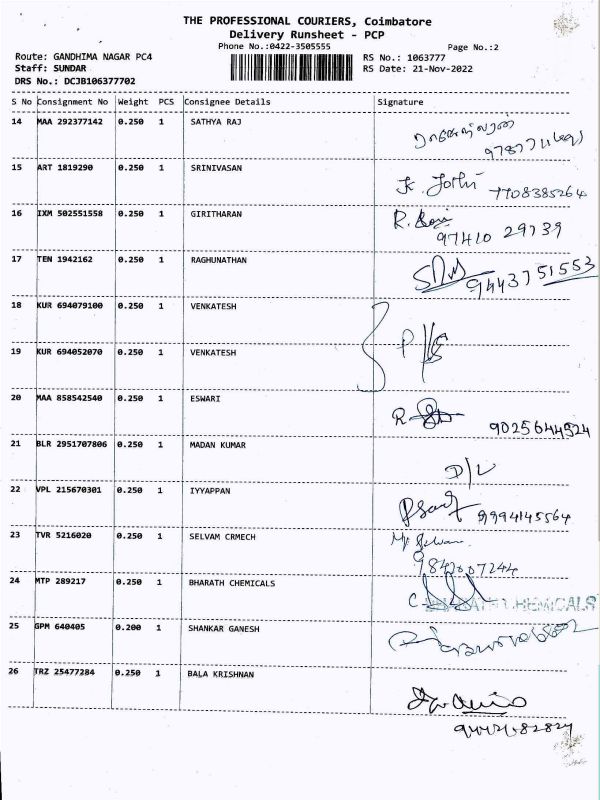 THE PROFESSIONAL COURIERS, Coimbatore
Delivery Runsheet - PCP
Phone No.:0422-3505555
Page No.:2
Route: GANDHIMA NAGAR PC4
RS No.: 1063777
Staff: SUNDAR
RS Date: 21-Nov-2022
DRS No.: DCJB106377702
S No Consignment No Weight PCS Consignee Details Signature
14 MAA 292377142 0.250 1 SATHYA RAJ
15 ART 1819290 0.250 1 SRINIVASAN K. Jothi 7708385264
16 IXM 502551558 0.250 1 GIRITHARAN R.
97410 29739
17 TEN 1942162 0.250 1 RAGHUNATHAN
9443751553
18 KUR 694079100 0.250 1 VENKATESH
19 KUR 694052070 0.250 1 VENKATESH
20 MAA 858542540 0.250 1 ESWARI
9025644924
21 BLR 2951707806 0.250 1 MADAN KUMAR
D/L
22 VPL 215670301 0.250 1 IYYAPPAN
9994145564
23 TVR 5216020 0.250 1 SELVAM CRMECH
24 MTP 289217 0.250 1 BHARATH CHEMICALS
CHEMICALS
25 GPM 640405 0.200 1 SHANKAR GANESH
26 TRZ 25477284 0.250 1 BALA KRISHNAN